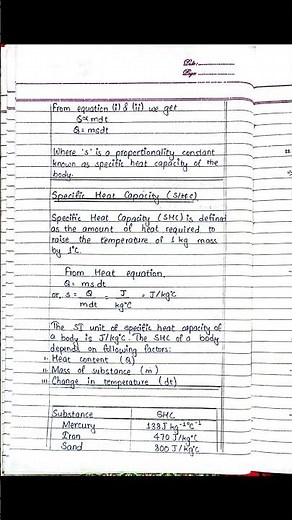 Date:
Page
From equation (i) & (ii) we get
Q∝ mdt
Q = msdt
Where 's' is a proportionality constant
known as specific heat capacity of the
body.
Specific Heat Capacity (SHC)
Specific Heat Capacity (SHC) is defined
as the amount of heat required to
raise the temperature of 1 kg mass
by 1°C.
From Heat equation,
Q = ms dt
or, s = Q/mdt = J/kg°C = J/kg°C
The SI unit of specific heat capacity of
a body is J/kg°C. The SHC of a body
depends on following factors:
i. Heat content (Q)
ii. Mass of substance (m)
iii. Change in temperature (dt)
Substance SHC
Mercury 138J kg⁻¹°C⁻¹
Iron 470 J/kg°C
Sand 800 J/kg°C